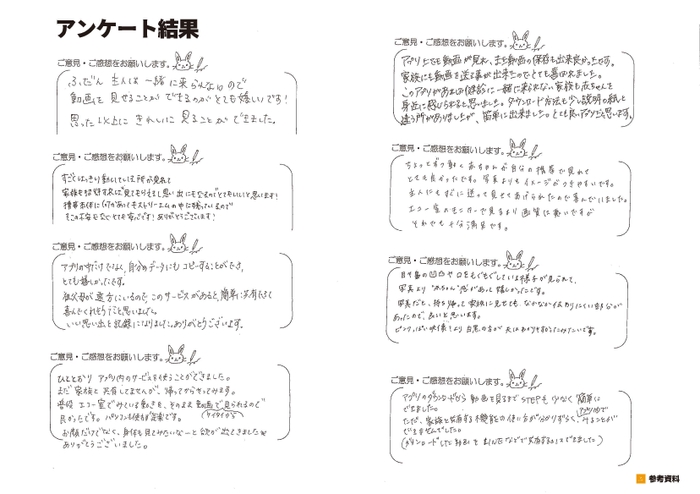 アンケート結果
ご意見・ご感想をお願いします。
ふだん 主人は 一緒 に来られないので
動画を 見せることが できるのがとても嬉しいです!
思った以上に きれいに 見ることが できました。
ご意見・ご感想をお願いします。
すごくはっきり動いている所が見れて
家族も経過を見てもらえるし思い出にもなるのでとてもいいと思います!
ご意見・ご感想をお願いします。
アプリの中だけでなく、自分のデータにもコピーすることができ、
とても嬉しかったです。
このサービスがあると、簡単に共有できて
喜んでくれそうと思いました。
いい思い出と記録になりました。ありがとうございます。
ご意見・ご感想をお願いします。
ひととおり アプリ内のサービスを使うことができました。
まだ 家族と 共有してませんが、帰ってからやってみます。
エコー室でみている動きを、そのまま動画で見られるので
良かったです。パソコンも使えず
お顔だけでなく、身体も見てみたいなーと 欲が出てきました
ありがとうございました。
ご意見・ご感想をお願いします。
アプリ上でも動画が見れ、また動画の保存も出来良かったです。
家族にも動画を送る事が出来たのでとても喜ばれました。
このアプリがあれば健診に一緒に来れない家族も赤ちゃんを
身近に感じられると思いました。ダウンロード方法も少し説明の紙と
違う所がありましたが、簡単に出来ました。とても良いアプリだと思います。
ご意見・ご感想をお願いします。
ちょっとずつ動く赤ちゃんが自分の携帯で見れて
とても良かったです。写真よりもイメージがつきやすいです。
主人にもすぐに送って見せてあげられたので喜んでいました。
エコー室のモニターで見るより画質は悪いですが
それでも十分満足です。
ご意見・ご感想をお願いします。
口をもぐもぐしている様子が見られて、
写真より "赤ちゃん"感があって嬉しかったです。
写真だと、持ち帰って家族に見せても、なかなか伝わりにくい部分が
あったので、良いと思います。
ご意見・ご感想をお願いします。
アプリのダウンロードから 動画を見るまで STEPも少なく 簡単に
できました。
ただ、家族と共有する機能の使い方が分かりづらく、アプリ内で みることが
できませんでした。
参考資料